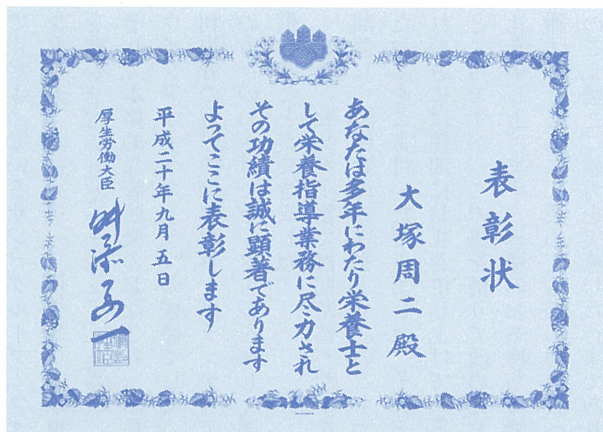 表彰状
大塚周二殿
あなたは多年にわたり栄養士と
して栄養指導業務に尽力され
その功績は誠に顕著であります
よってここに表彰します
平成二十年九月五日
厚生労働大臣 舛添要一